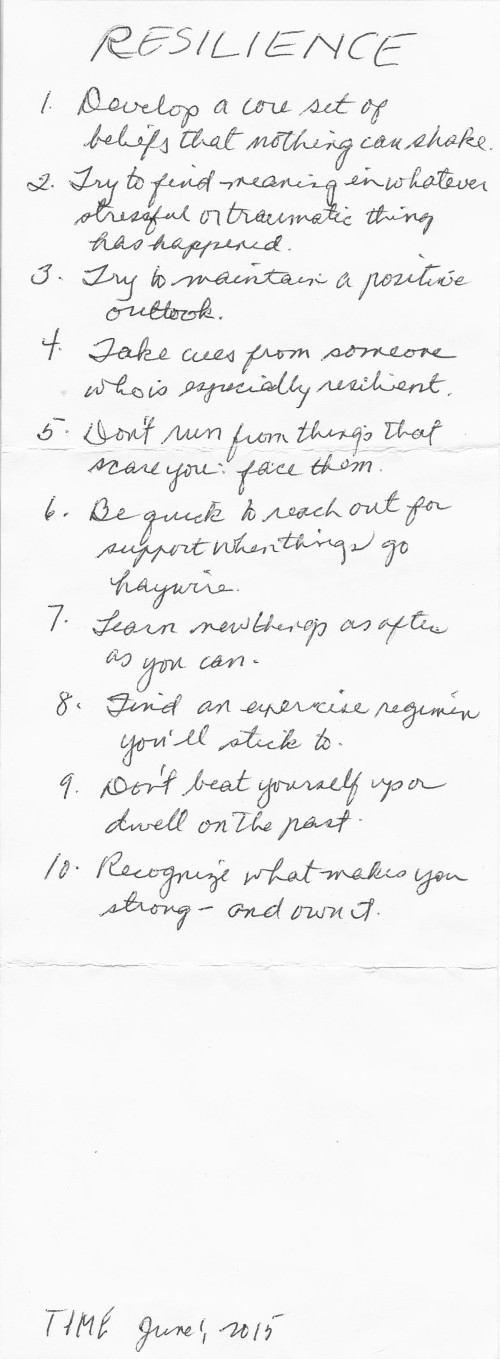 RESILIENCE
1. Develop a core set of
beliefs that nothing can shake.
2. Try to find meaning in whatever
stressful or traumatic thing
has happened.
3. Try to maintain a positive
outlook.
4. Take cues from someone
who is especially resilient.
5. Don't run from things that
scare you: face them.
6. Be quick to reach out for
support when things go
haywire.
7. Learn new things as often
as you can.
8. Find an exercise regimen
you'll stick to.
9. Don't beat yourself up or
dwell on the past.
10. Recognize what makes you
strong - and own it.
TIME June 1, 2015